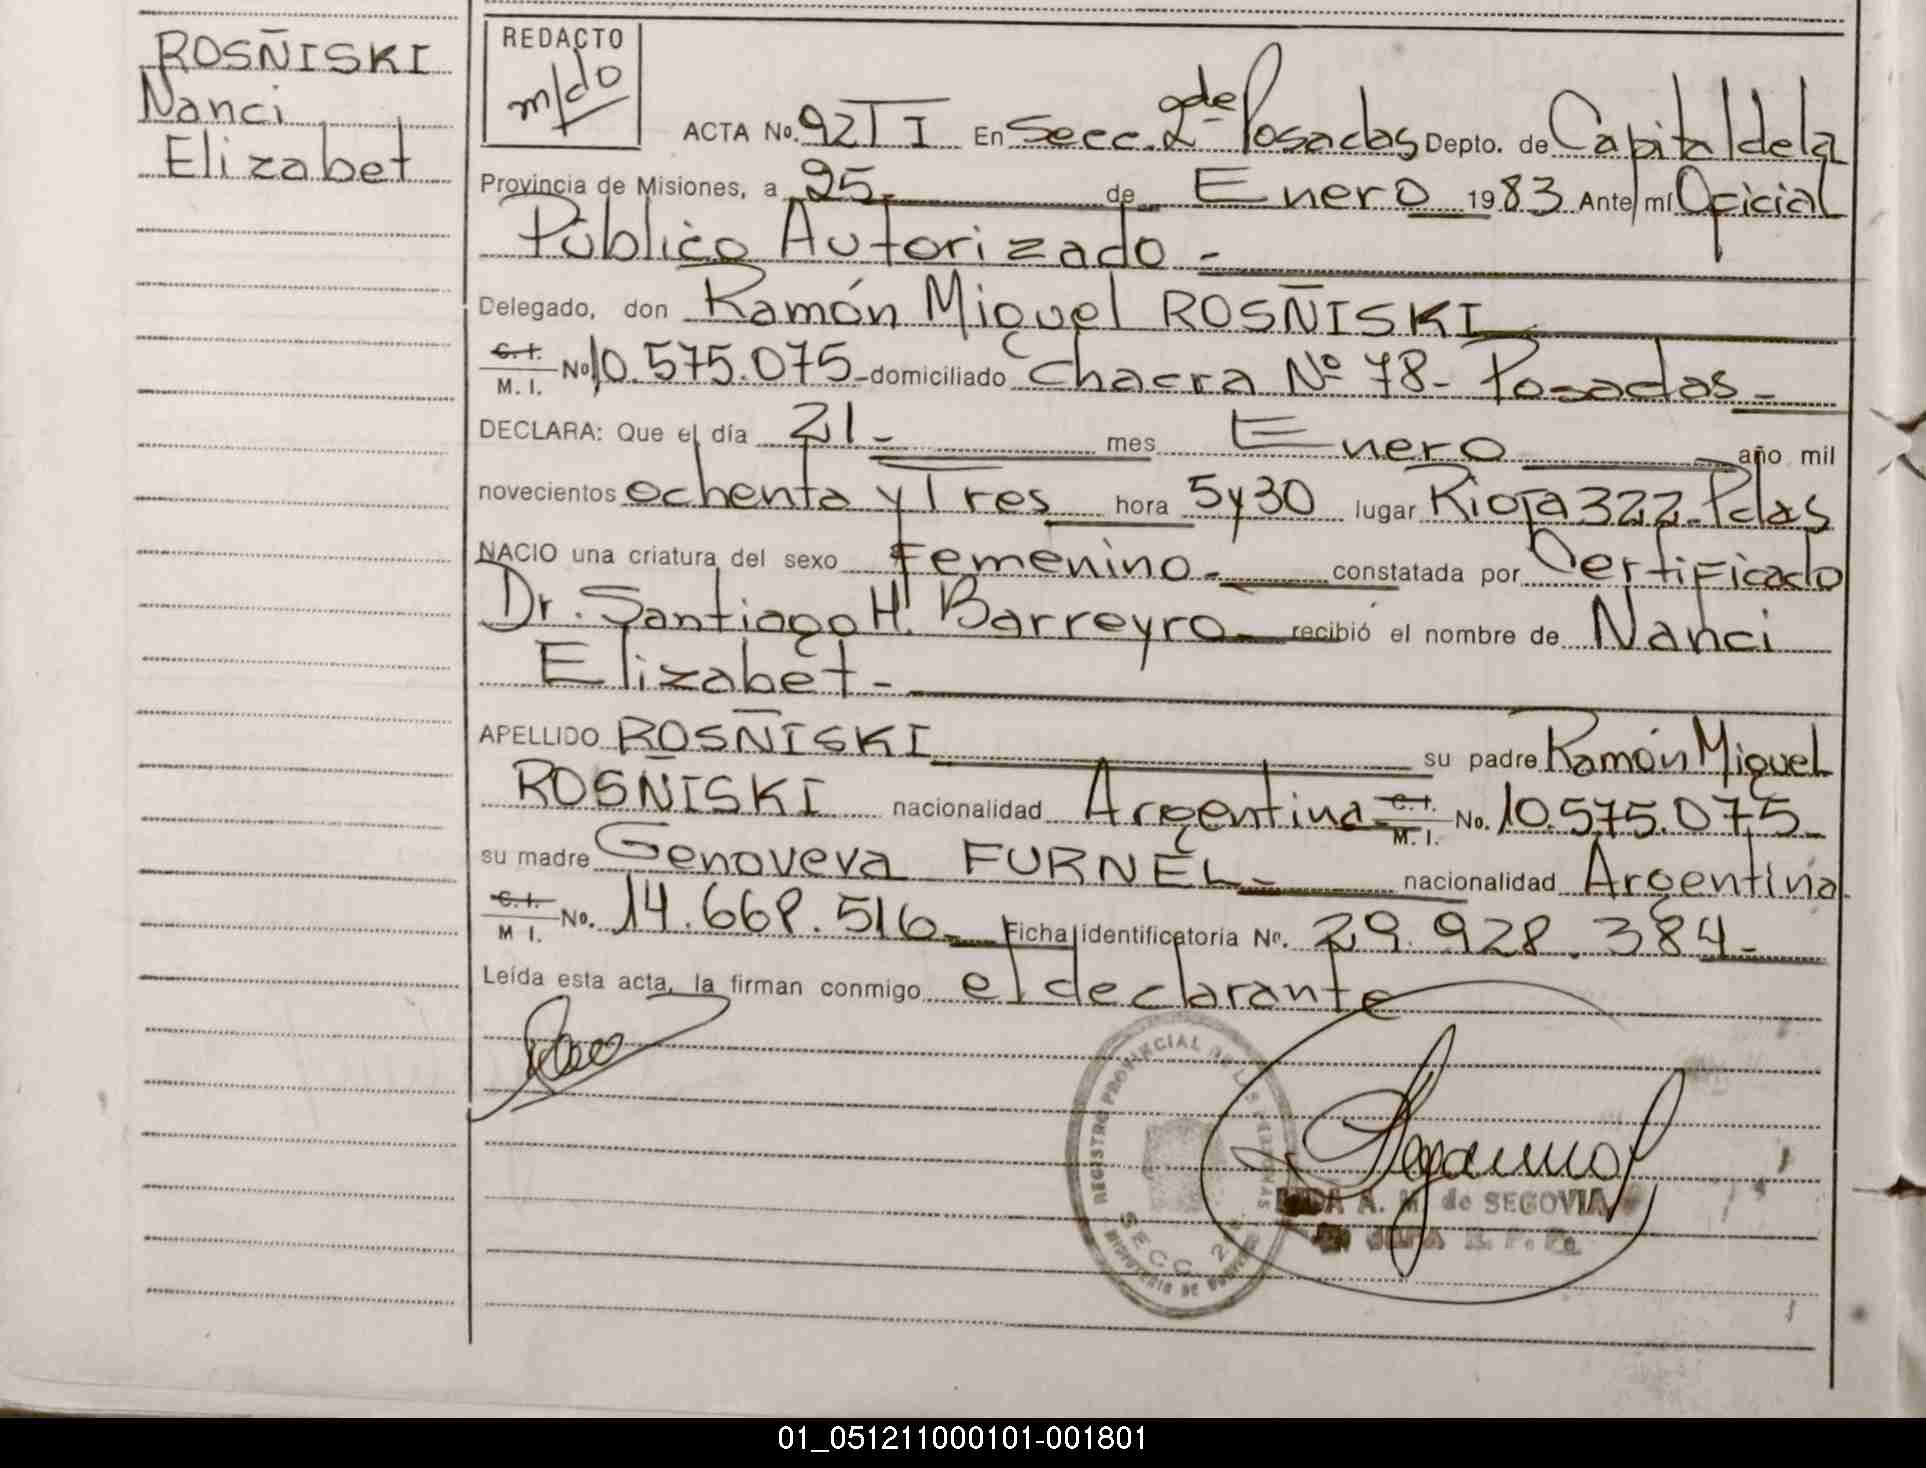 ROSÑISKI
Nanci
Elizabet
REDACTO
m/do
ACTA No. 92 T I En Secc. 2da de Posadas Depto. de Capital de la
Provincia de Misiones, a 25 - de Enero 1983 Ante mí Oficial
Público Autorizado -
Delegado, don Ramón Miguel ROSÑISKI
C. I. / M. I. No 10.575.075 - domiciliado Chacra Nº 78 - Posadas -
DECLARA: Que el día 21 - mes Enero año mil
novecientos ochenta y Tres hora 5 y 30 lugar Rioja 322 - Pdas
NACIO una criatura del sexo Femenino - constatada por Certificado
Dr. Santiago H. Barreyro - recibió el nombre de Nanci
Elizabet -
APELLIDO ROSÑISKI su padre Ramón Miguel
ROSÑISKI nacionalidad Argentina - C. I. / M. I. No. 10.575.075 -
su madre Genoveva FURNEL - nacionalidad Argentina.
C. I. / M I. No. 14.668.516 - Ficha identificatoria Nº. 29.928.384 -
Leída esta acta, la firman conmigo el declarante
REGISTRO PROVINCIAL DE LAS PERSONAS
SECC. 2
A. M. de SEGOVIA
JEFA R. P. P.
01_051211000101-001801